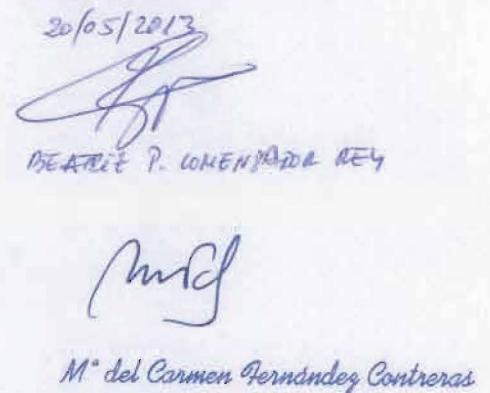 20/05/2013
BEATRIZ P. COMENDADOR REY
Mª del Carmen Fernández Contreras